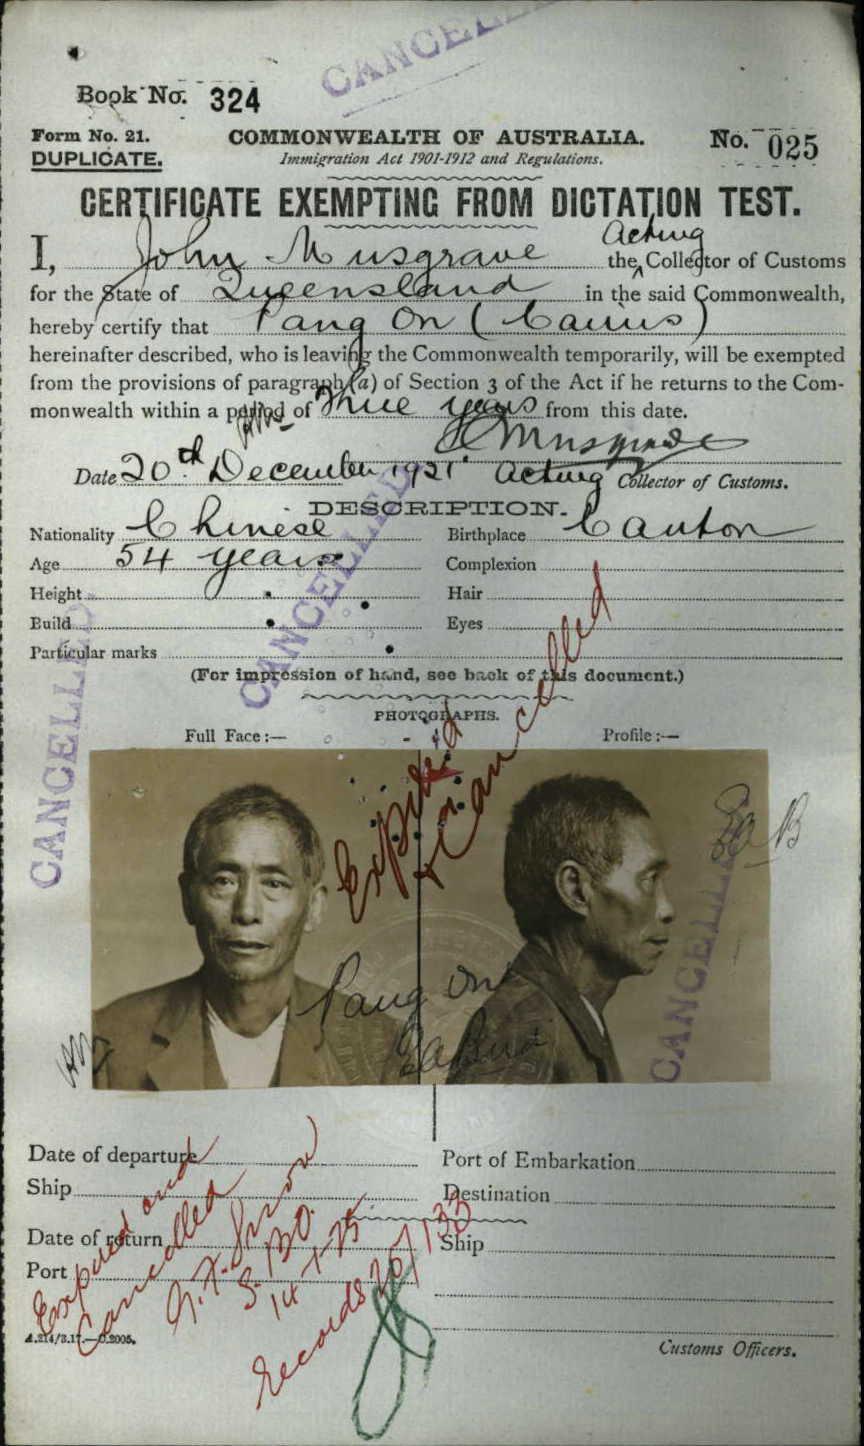 CANCELLED
Book No. 324
Form No. 21.
DUPLICATE.
COMMONWEALTH OF AUSTRALIA.
Immigration Act 1901-1912 and Regulations.
No. 025
CERTIFICATE EXEMPTING FROM DICTATION TEST.
I, John Musgrave the Acting Collector of Customs
for the State of Queensland in the said Commonwealth,
hereby certify that Pang On (Cairns)
hereinafter described, who is leaving the Commonwealth temporarily, will be exempted
from the provisions of paragraph (a) of Section 3 of the Act if he returns to the Com-
monwealth within a period of Three years from this date.
Musgrave
Date 20th December 1921 Acting Collector of Customs.
DESCRIPTION.
Nationality Chinese Birthplace Canton
Age 54 years Complexion
Height Hair
Build Eyes
Particular marks
(For impression of hand, see back of this document.)
CANCELLED
CANCELLED
PHOTOGRAPHS.
Full Face:— Profile:—
Expired
& Cancelled
Pang On
CANCELLED
Date of departure Port of Embarkation
Ship Destination
Date of return Ship
Port
Expired and
Cancelled
S.BO.
14-1-25
Records
A.214/3.17.—C.2005.
Customs Officers.